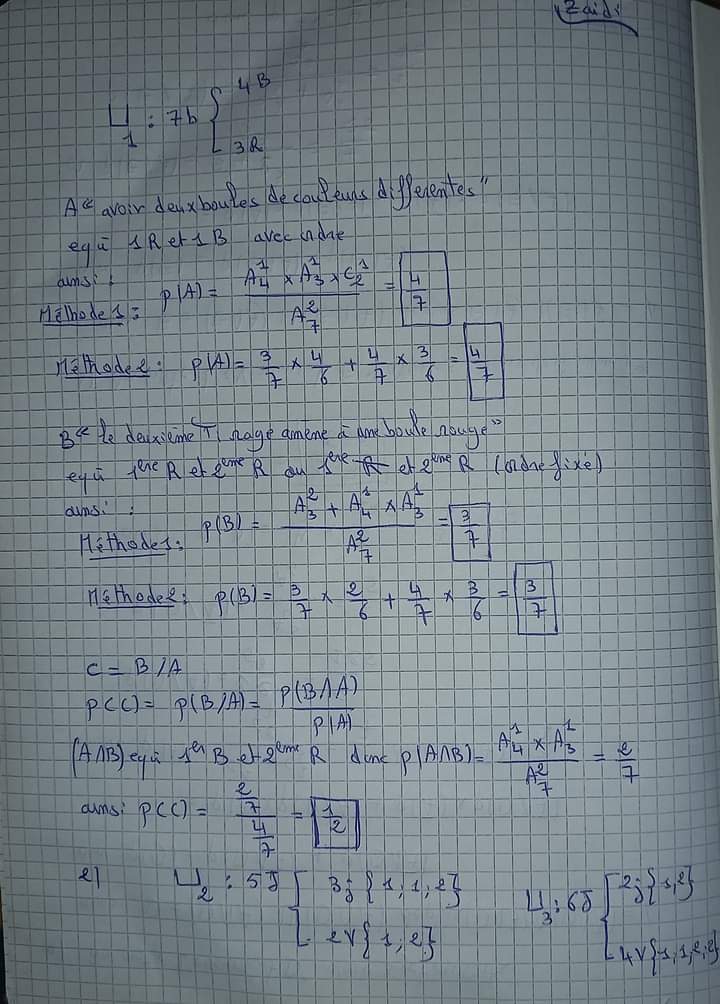 Zaidi
U₁ : 7b { 4B
3R
A "avoir deux boules de couleurs differentes"
eq ù 1R et 1B avec ordre
ainsi :
Méthode 1 : p(A) = (A₄¹ × A₃¹ × C₂¹) / A₇² = 4/7
Méthode 2 : p(A) = 3/7 × 4/6 + 4/7 × 3/6 = 4/7
B "le deuxième Tirage amene à une boule rouge"
eq ù 1ère R et 2ème R ou 1ère R̶ et 2ème R (ordre fixé)
ainsi :
Méthode 1 : p(B) = (A₃² + A₄¹ × A₃¹) / A₇² = 3/7
Méthode 2 : p(B) = 3/7 × 2/6 + 4/7 × 3/6 = 3/7
C = B/A
p(C) = p(B/A) = p(B∩A) / p(A)
(A∩B) eq ù 1er B et 2ème R donc p(A∩B) = (A₄¹ × A₃¹) / A₇² = 2/7
ainsi p(C) = (2/7) / (4/7) = 1/2
2) U₂ : 5J { 3j {1, 1, 2}
2V {1, 2}
U₃ : 6J { 2j {1, 2}
4V {1, 1, 2, 2}